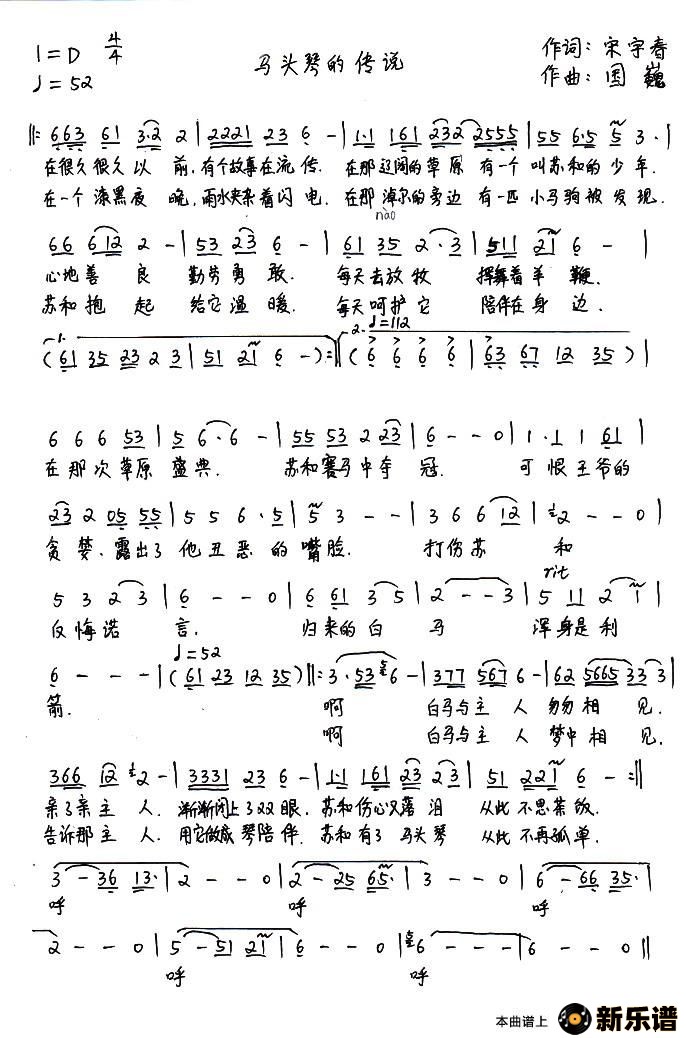 1=D 4/4
马头琴的传说
作词：宋宇春
♩=52
作曲：国巍
‖: 663 61 3·2 2 | 2221 23 6 - | 1·1 161 232 2555 | 55 6·5 5 3· |
在很久很久以 前，有个故事在流 传. 在那辽阔的草原 有一个 叫苏和的 少年.
在一个漆黑夜 晚，雨水夹杂着闪 电. 在那淖尔的旁边 有一匹 小马驹被 发现.
nào
66 612 2 - | 53 23 6 - | 61 35 2·3 | 511 21 6 - |
心地善 良 勤劳勇 敢. 每天去放牧 挥舞着羊 鞭.
苏和抱 起 给它温 暖. 每天呵护它 陪伴在身 边.
1. 2. ♩=112
(61 35 23 2 3 | 51 21 6 -):‖ (6 6 6 6 | 63 67 12 35) |
6 6 6 53 | 5 6·6 - | 55 53 2 23 | 6 - - 0 | 1·1 1 61 |
在那次草原 盛典. 苏和赛马中夺 冠. 可恨王爷的
23 2 05 55 | 5 5 6·5 | 5 3 - - | 3 6 6 12 | 2 - - 0 |
贪婪，露出了 他丑恶的嘴脸. 打伤苏 和
rit
5 3 2 3 | 6 - - 0 | 6 61 3 5 | 2 - - 3 | 5 11 2 1 |
反悔诺 言. 归来的白 马 浑身是利
♩=52
6 - - - | (61 23 12 35) ‖: 3·53 6 - | 377 567 6 - | 62 5665 33 3 |
箭. 啊 白马与主 人 匆匆相 见.
啊 白马与主 人 梦中相 见.
366 12 2 - | 3331 23 6 - | 1·1 161 23 23 | 51 221 6 - :‖
亲了亲主 人. 渐渐闭上了双眼. 苏和伤心又落 泪 从此 不思茶饭.
告诉那主 人. 用它做成 琴陪伴. 苏和有了 马头琴 从此 不再孤单.
3 - 36 13· | 2 - - 0 | 2 - 25 65· | 3 - - 0 | 6 - 66 35· |
呼 呼 呼
2 - - 0 | 5 - 51 21 | 6 - - 0 | 6 - - - | 6 - - 0 ‖
呼 呼
本曲谱上 新乐谱